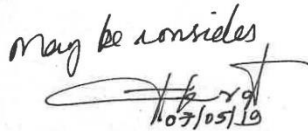 may be consider
07/05/19